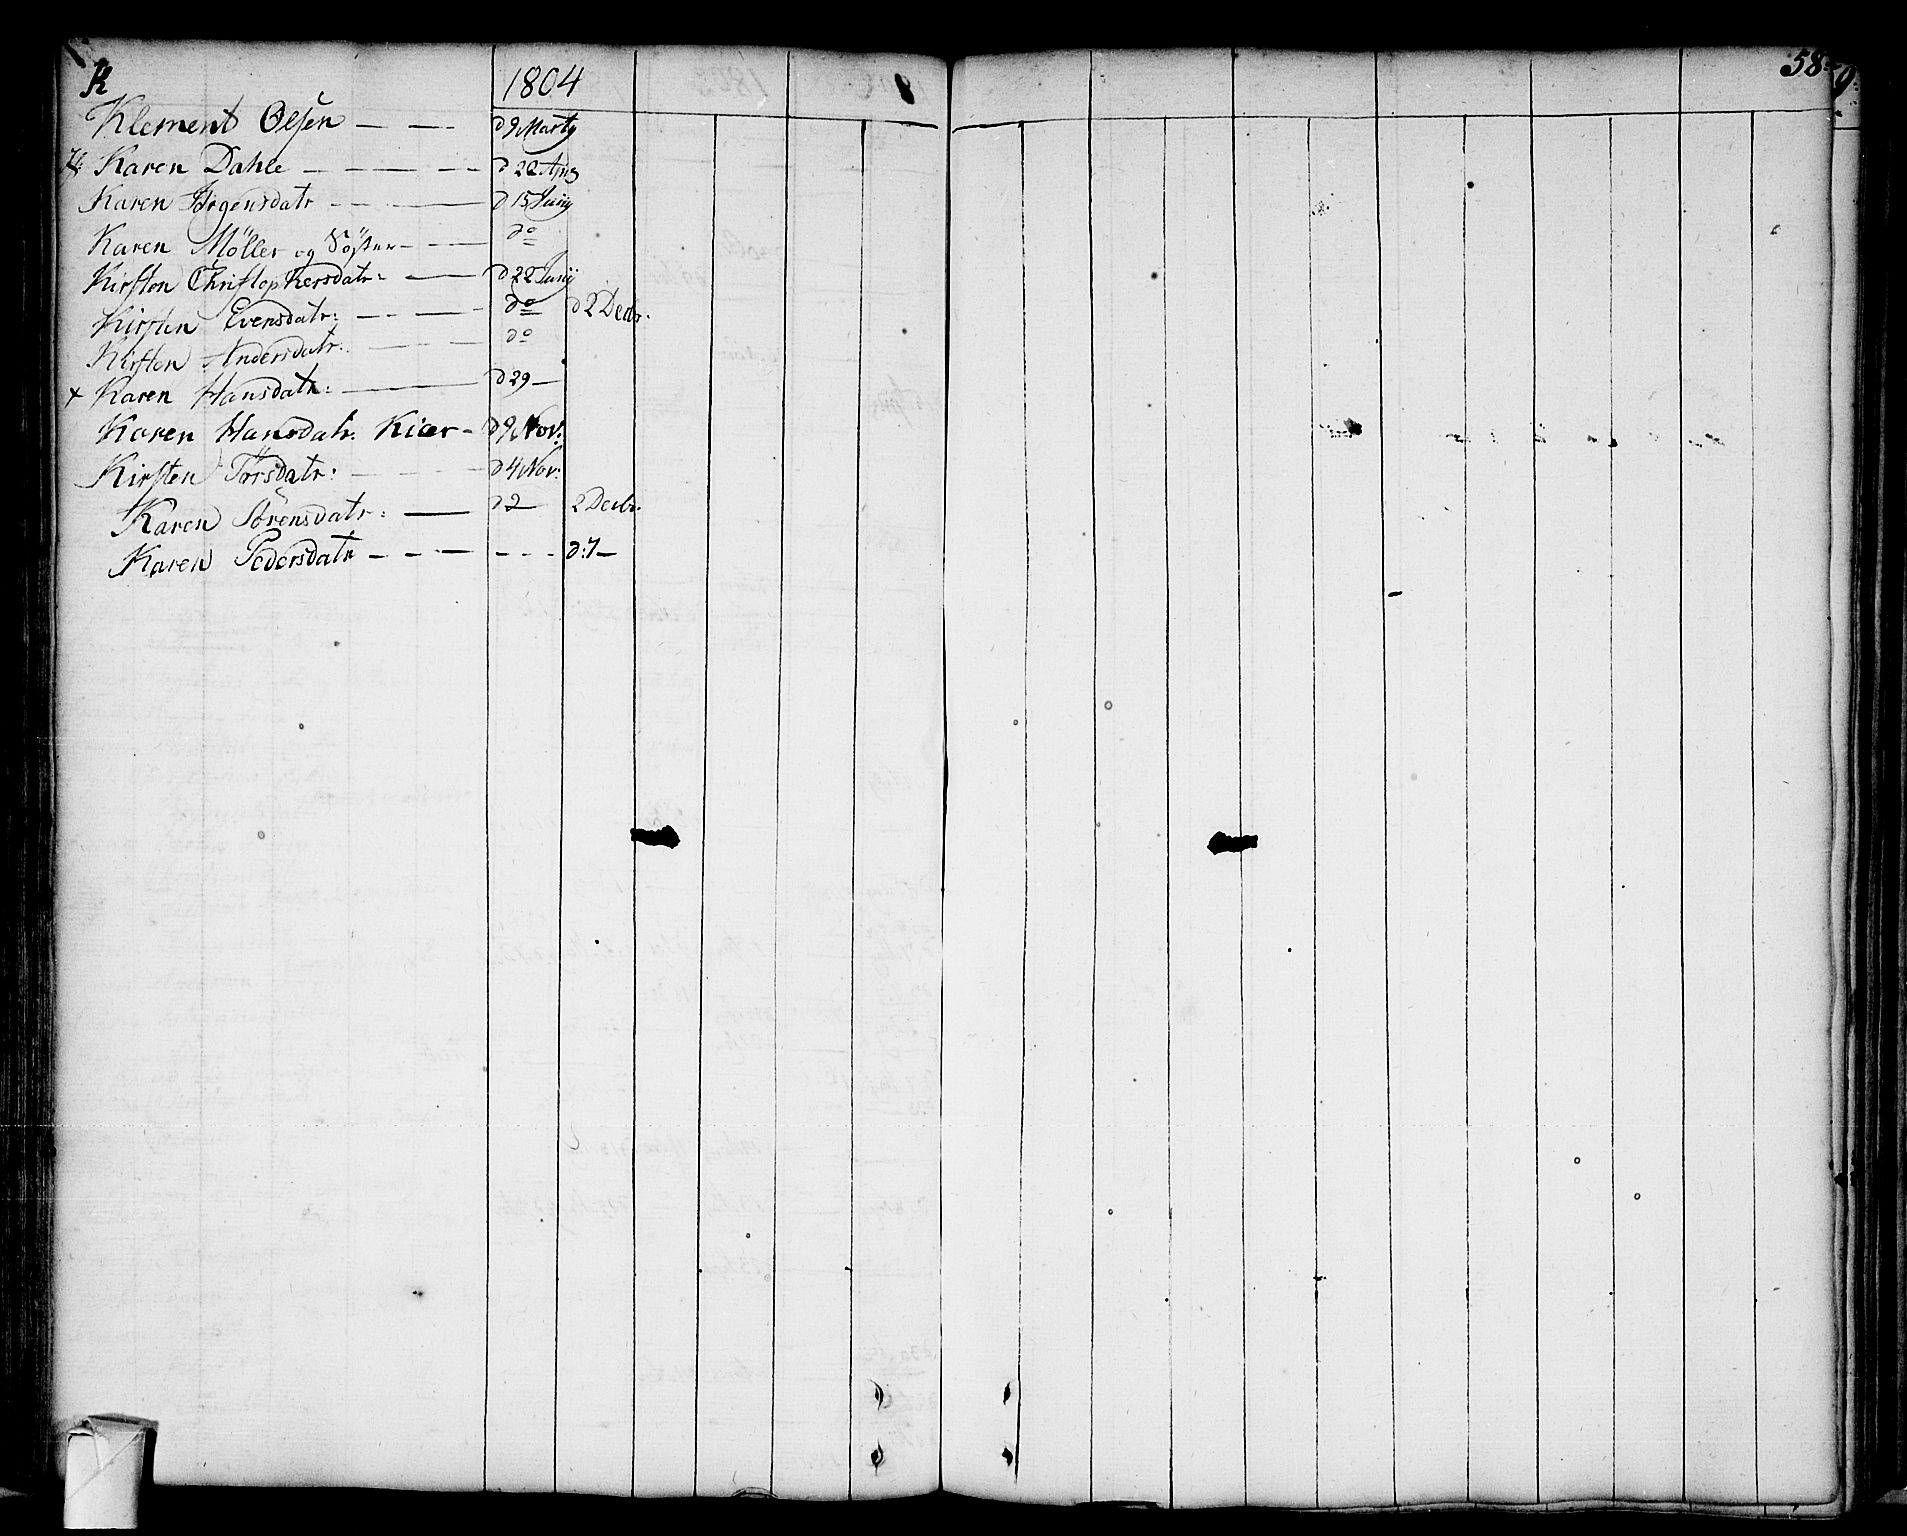 K 1804 58
Klement Olsen — — d 9 Marty
Karen Dahle — — — — d 22 Apr
Karen Jørgensdatr — — — d 15 Junij
Karen Møller og Søster — — — do
Kirsten Christophersdatr: — — d 22 Junij
Kirsten Evensdatr: — — — do d 2 Decbr.
Kirsten Andersdatr: — — — do
x Karen Hansdatr: — — d 29 —
Karen Hansdatr: Kiær — d 9 Nov:
Kirsten Torsdatr: — — — d 4 Nov:
Karen Sørensdatr: — — d 2 — 2 Decbr.
Karen Pedersdatr — — — - - - d: 7 —